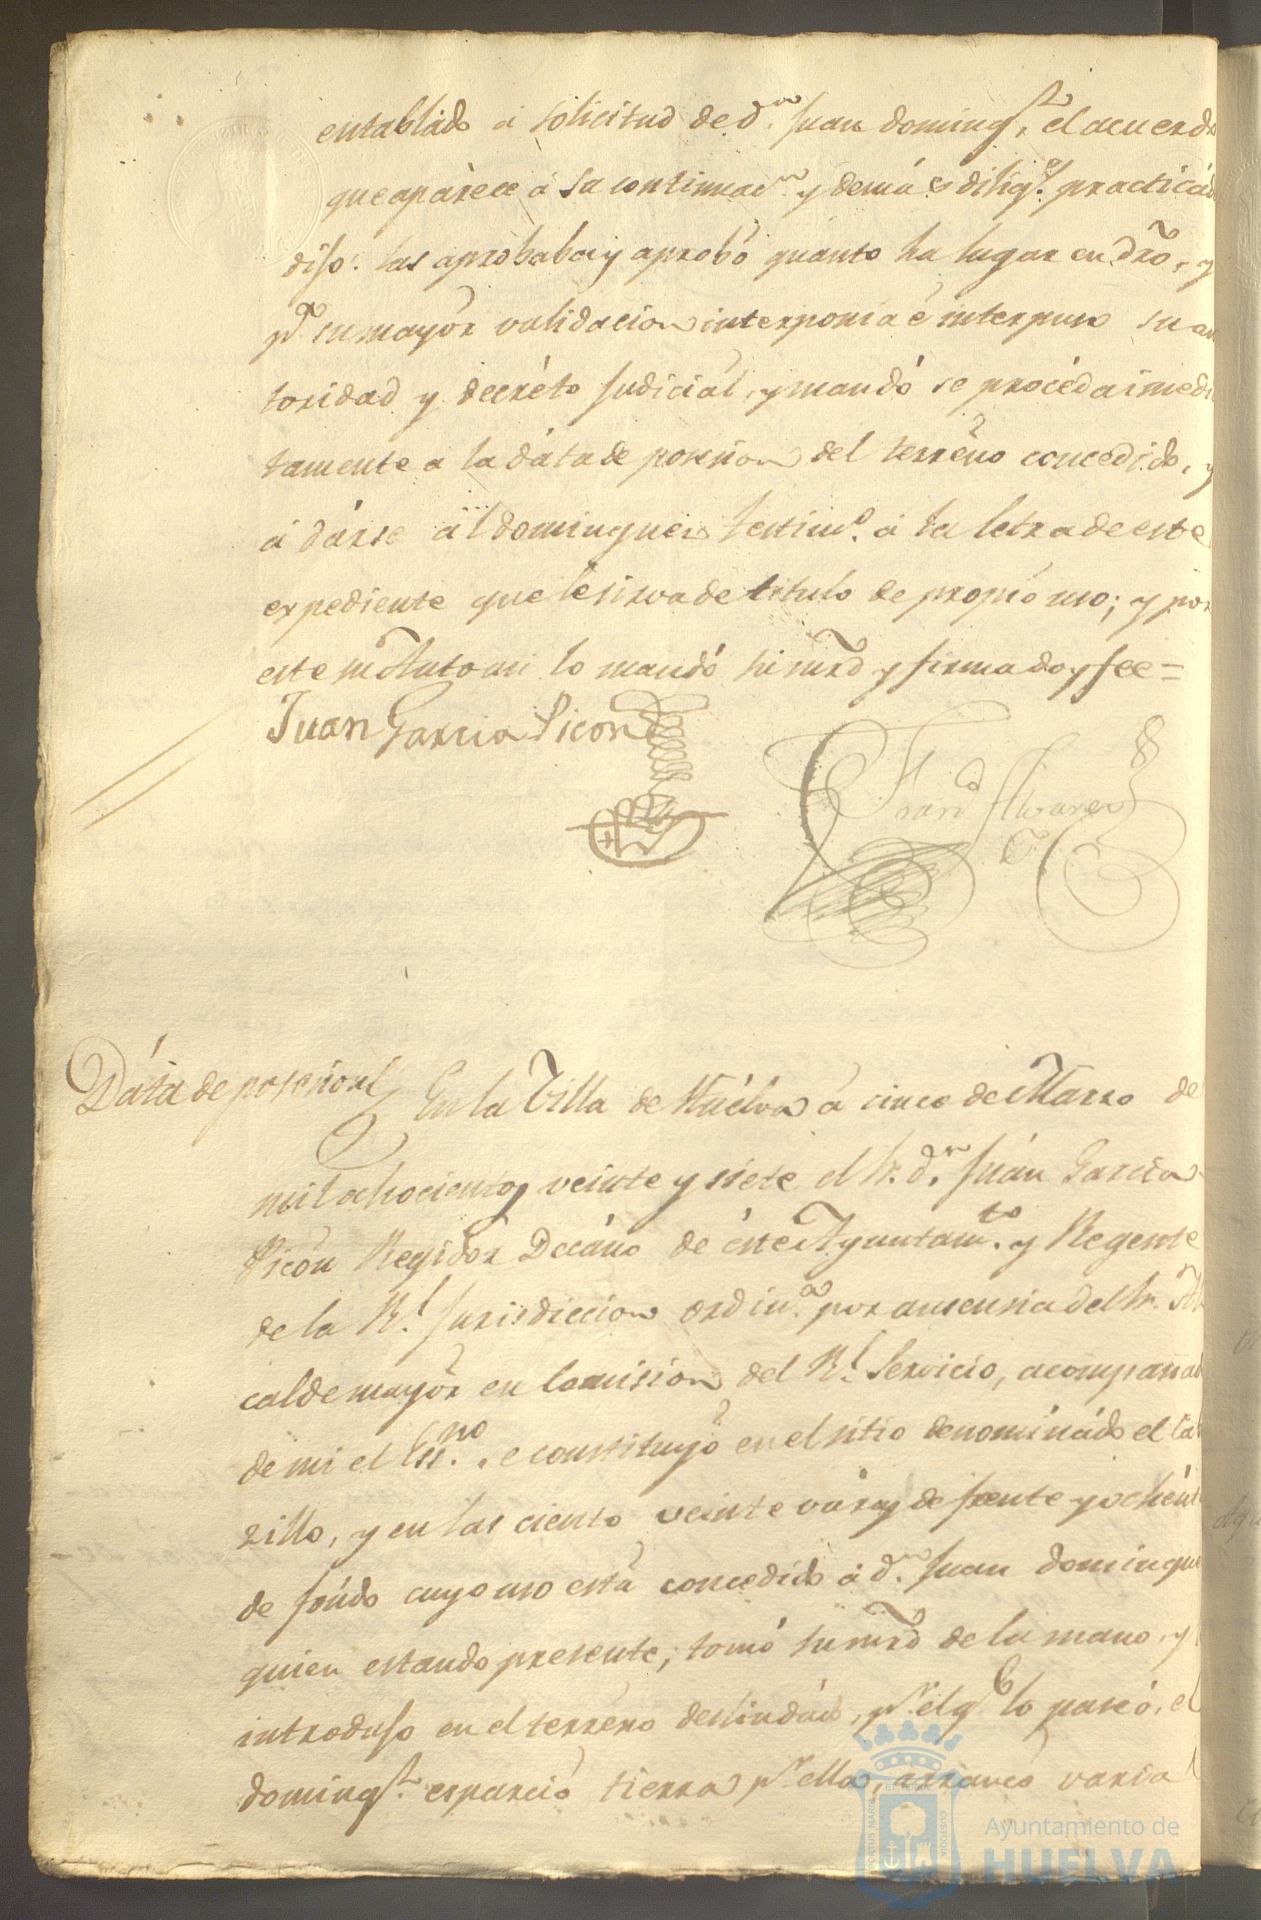 entablado á solicitud de dn. Juan domingz. el acuerdo
que aparece á su continuacn. y demás diligs. practicad
dijo: las aprobaba y aprobó quanto ha lugar en dro, y
pa. su mayor validacion interponia é interpuso su au
toridad y decréto judiciál, y mandó se procéda imedia
tamente a la dáta de posesion del terréno concedido, y
á dárse ál dominguez testimo. á la letra de este
expediente que le sirva de titulo de propio uso; y por
este su Auto asi lo mandó su mrd y firma doy fee=
Juan Garcia Picon
Frando. Alvarez
Dáta de posesion
En la Villa de Huélva á cinco de Marzo de
mil ochocientos veinte y siete el Sr. dn. Juán García
Picón Regidór Decáno de éste Ayuntamto. y Regente
de la Rl. Jurisdiccion ordina. por ausencia del Sr. Al
calde mayór en Comision del Rl. Servicio, acompañad
de mi el Essno. se constituyó en el sitio denomináado el Ca
rzillo, y en las ciento veinte váras de frente y ochént
de fóndo cuyo uso está concedido á dn. Juan domingue
quien estando presente, tomó su mrd de la mano, y
introdujo en el terréno deslindádo, pr. el qe. lo paseó, el
domingz. esparció tierra pr. ella, arrancó varia
Ayuntamiento de
HUELVA